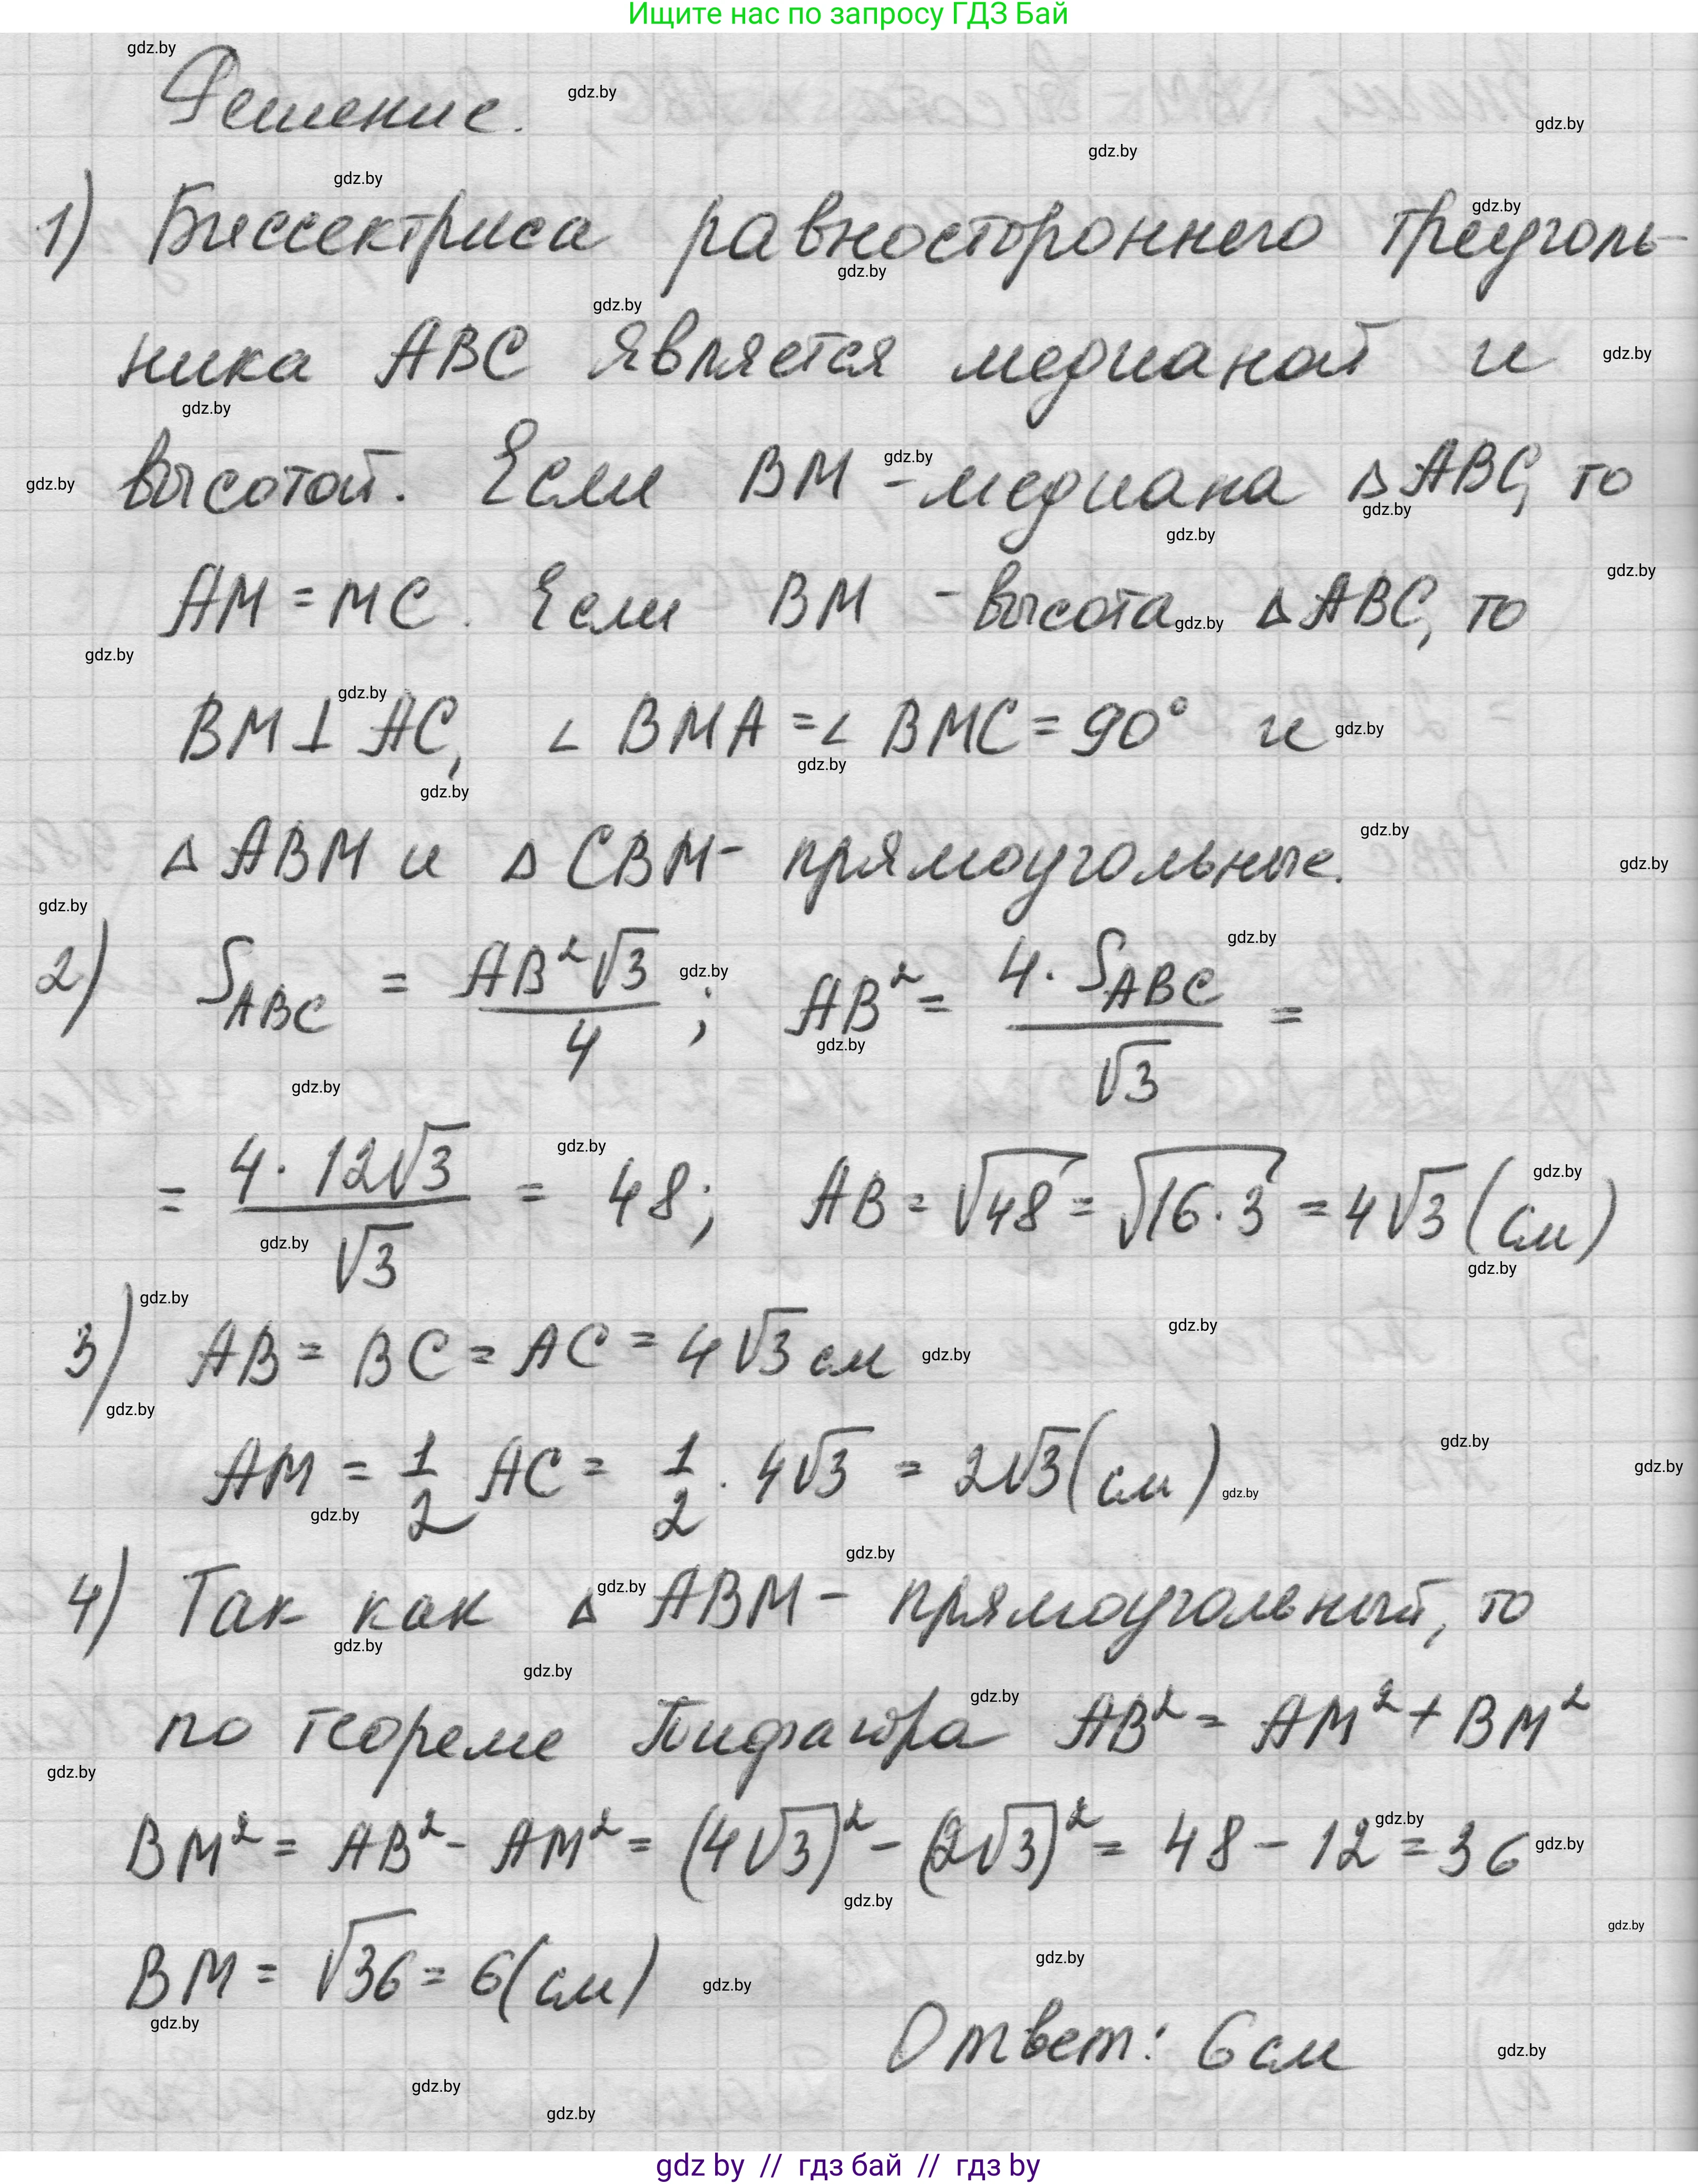 Ищите нас по запросу ГДЗ Бай
Решение.
1) Биссектриса равностороннего треуголь-
ника ABC является медианой и
высотой. Если BM - медиана ΔABC, то
AM = MC. Если BM - высота ΔABC, то
BM ⊥ AC, ∠BMA = ∠BMC = 90° и
ΔABM и ΔCBM - прямоугольные.
2) S_ABC = AB²√3 / 4; AB² = 4·S_ABC / √3 =
= 4·12√3 / √3 = 48; AB = √48 = √16·3 = 4√3 (см)
3) AB = BC = AC = 4√3 см
AM = 1/2 AC = 1/2 · 4√3 = 2√3 (см)
4) Так как ΔABM - прямоугольный, то
по теореме Пифагора AB² = AM² + BM²
BM² = AB² - AM² = (4√3)² - (2√3)² = 48 - 12 = 36
BM = √36 = 6 (см)
Ответ: 6 см
gdz by // гдз бай // гдз by